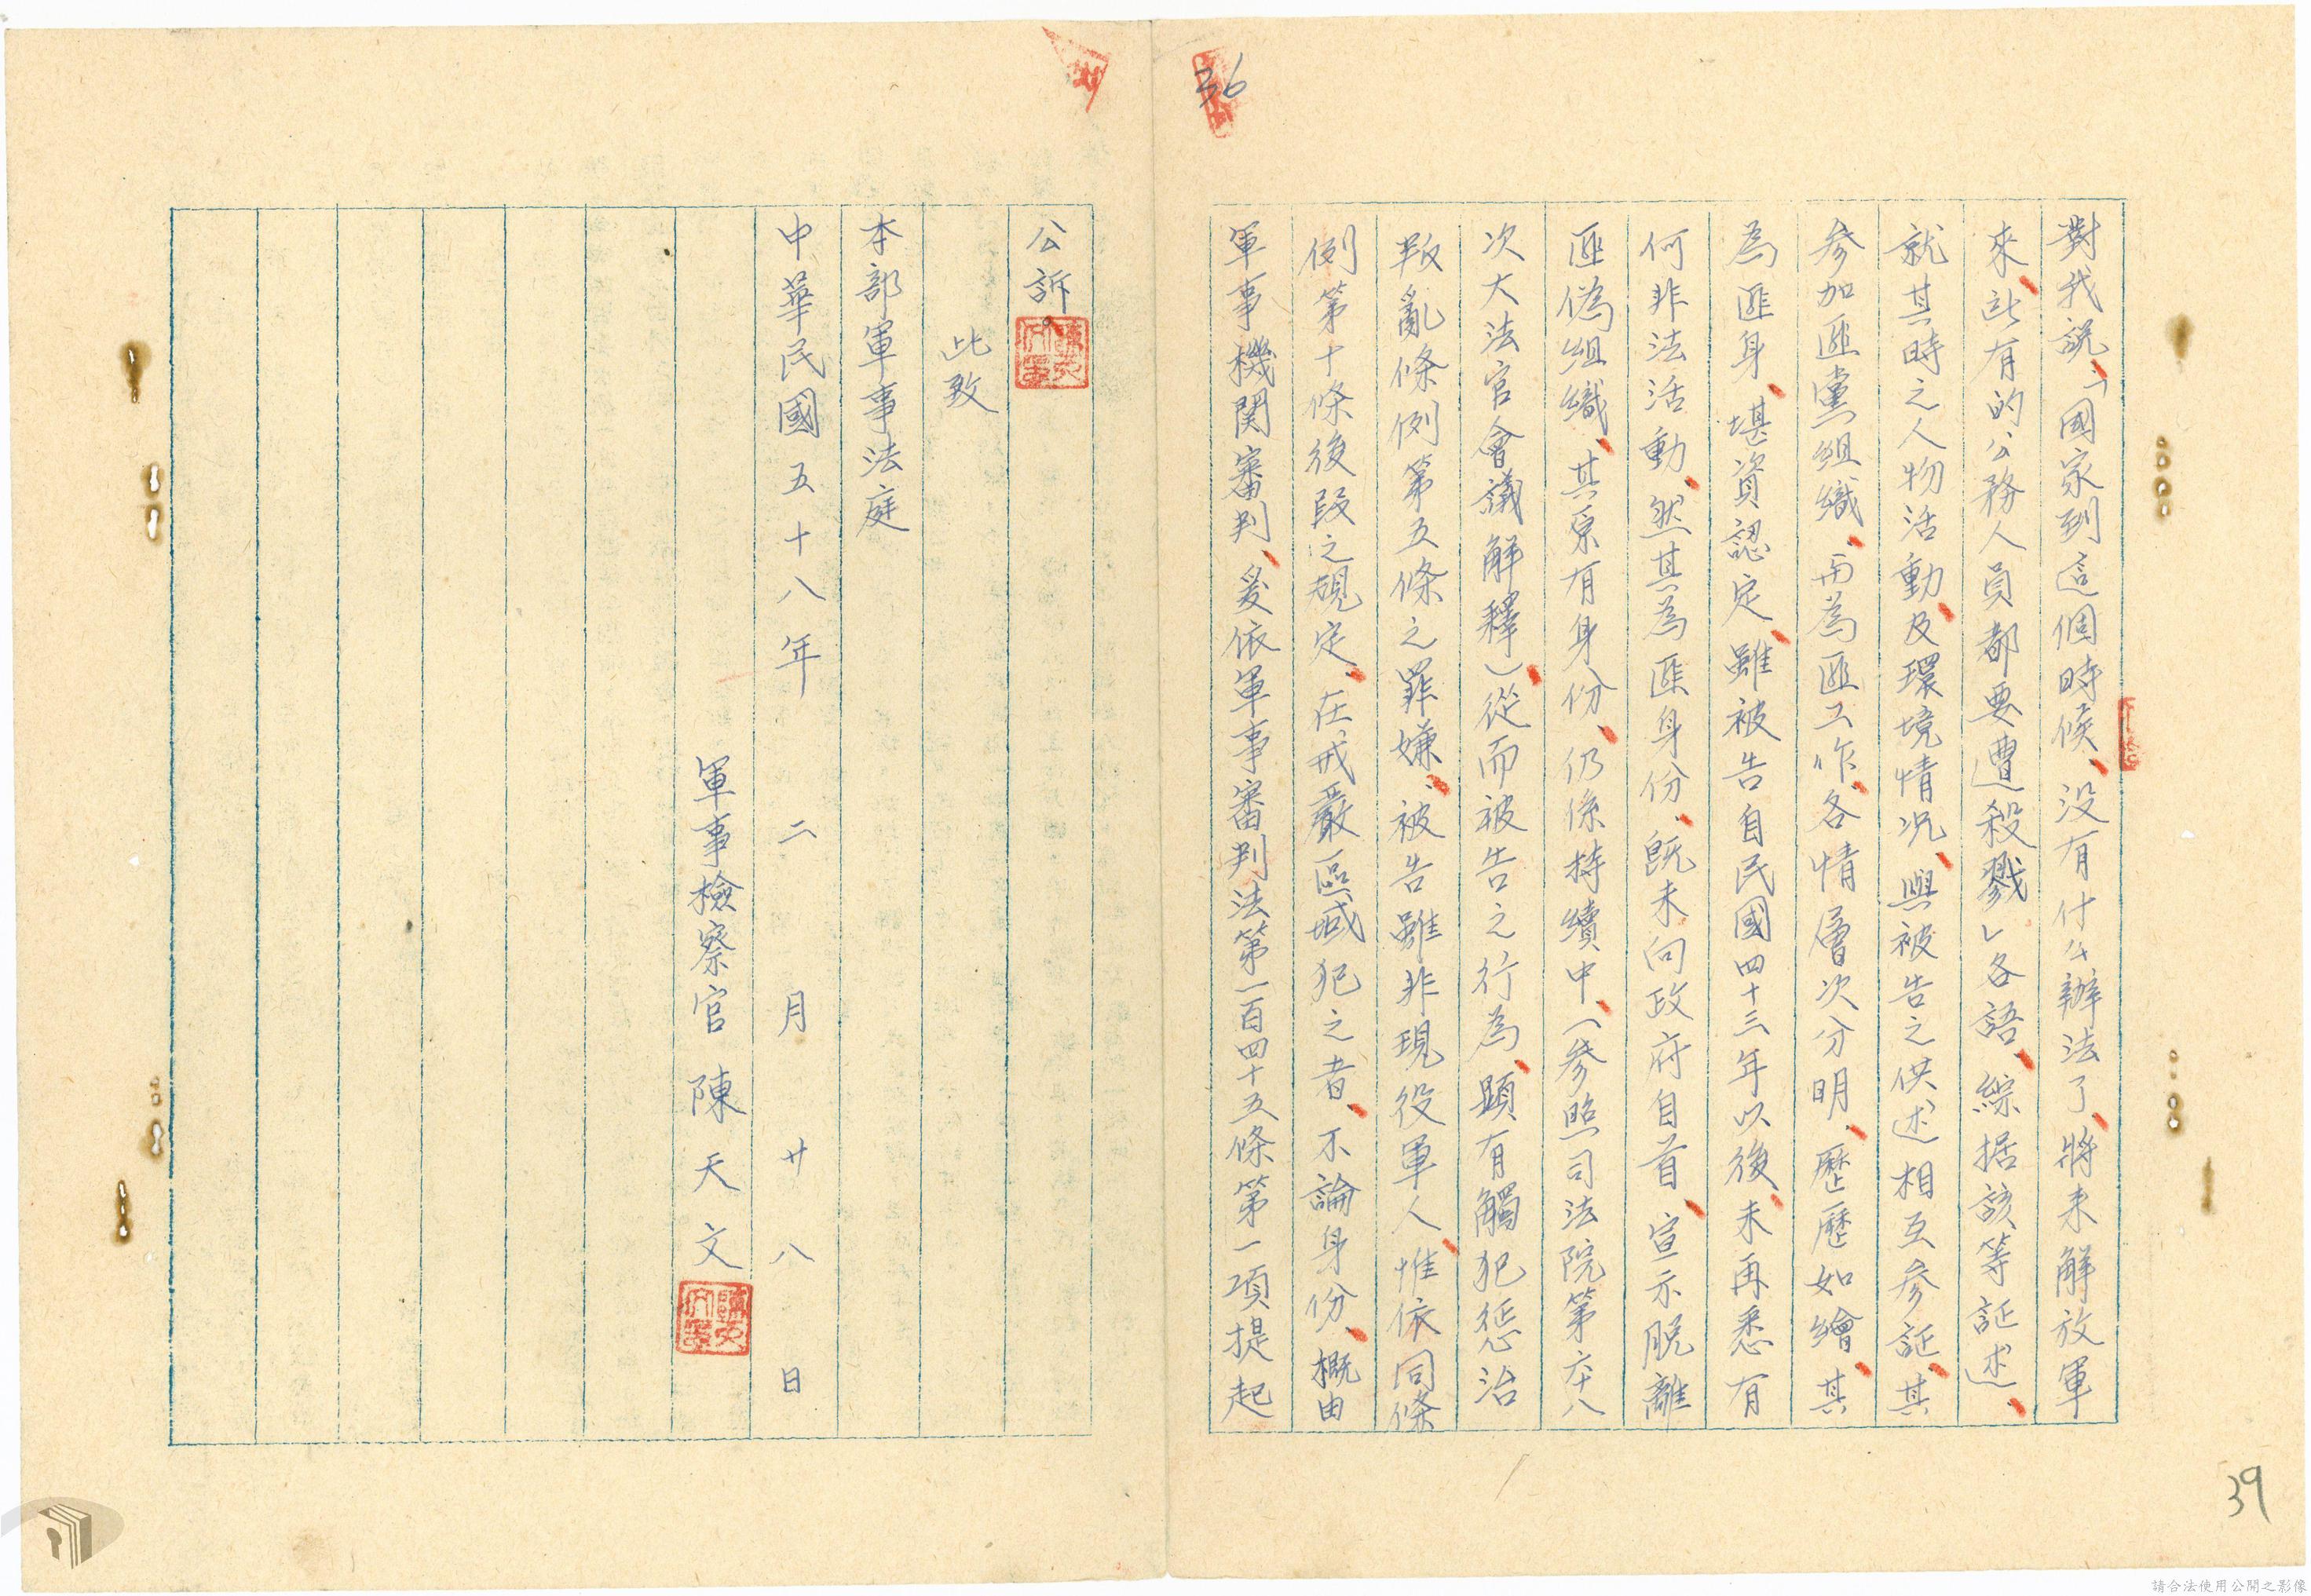 對我說、「國家到這個時候、没有什么辦法了、將来解放軍
來、所有的公務人員都要遭殺戮」各語、綜据該等証述、
就其時之人物活動、及環境情况、與被告之供述相互参証、其
参加匪黨組織、而為匪工作、各情層次分明、歷歷如繪、其
為匪身、堪資認定、雖被告自民國四十三年以後、未再悉有
何非法活動、然其為匪身份、既未向政府自首、宣示脱離
匪偽組織、其原有身份、仍係持續中、（参照司法院第六十八
次大法官會議解釋）從而被告之行為、顯有觸犯惩治
叛亂條例第五條之罪嫌、被告雖非現役軍人、惟依同條
例第十條後段之規定、在戒嚴區域犯之者、不論身份、概由
軍事機関審判、爰依軍事審判法第一百四十五條第一項提起
公訴。
此致
本部軍事法庭
中華民國五十八年二月廿八日
軍事檢察官 陳天文
36
39
請合法使用公開之影像